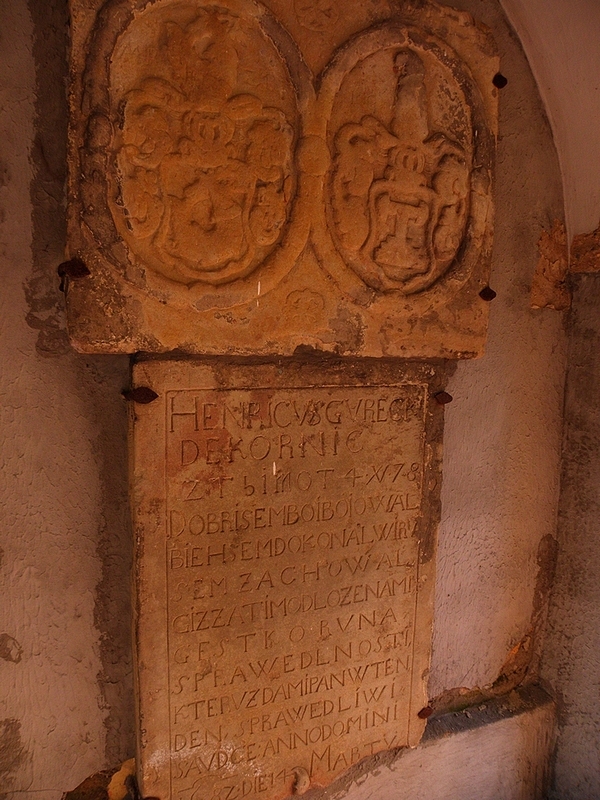 HENRICVS GVRECK
DE KORNIC
Z TbIMOT 4 V 7-8
DOBRI SEM BOI BOIOWAL
BIEH SEM DOKONAL WIRV
SEM ZACHOWAL
GIZ ZATIM ODLOZENA MI
GEST KORVNA
SPRAWEDLNOSTI
KTERVZ DA MI PAN W TEN
DEN SPRAWEDLIWI
SAVDCE ANNO DOMINI
DIE 14 MARTY